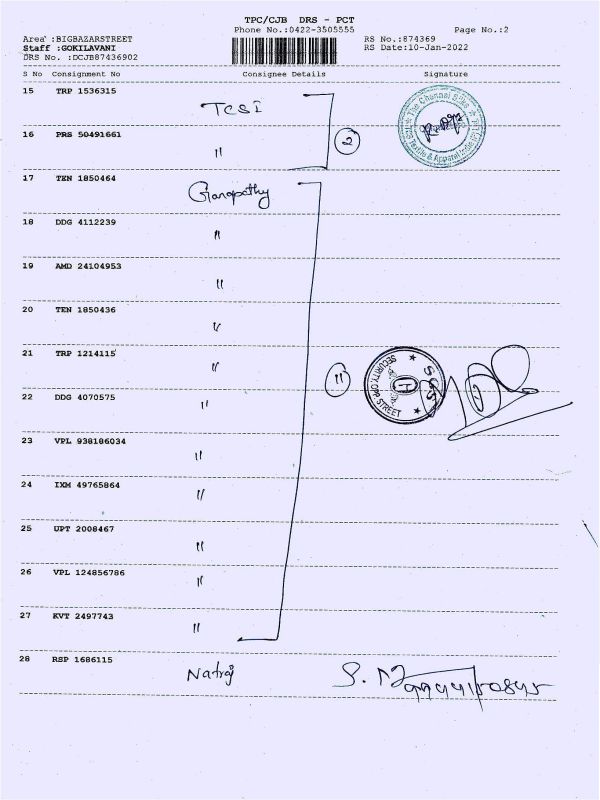 TPC/CJB DRS - PCT
Phone No.:0422-3505555
Page No.:2
Area :BIGBAZARSTREET
RS No.:874369
Staff :GOKILAVANI
RS Date:10-Jan-2022
DRS No. :DCJB87436902
S No Consignment No Consignee Details Signature
15 TRP 1536315
TCSI
16 PRS 50491661
"
2
The Chennai Silks
Textile & Apparel
17 TEN 1850464
Ganapathy
18 DDG 4112239
"
19 AMD 24104953
"
20 TEN 1850436
"
21 TRP 1214115
"
11
SECURITY.OPP. STREET
22 DDG 4070575
"
23 VPL 938186034
"
24 IXM 49765864
"
25 UPT 2008467
"
26 VPL 124856786
"
27 KVT 2497743
"
28 RSP 1686115
Natraj